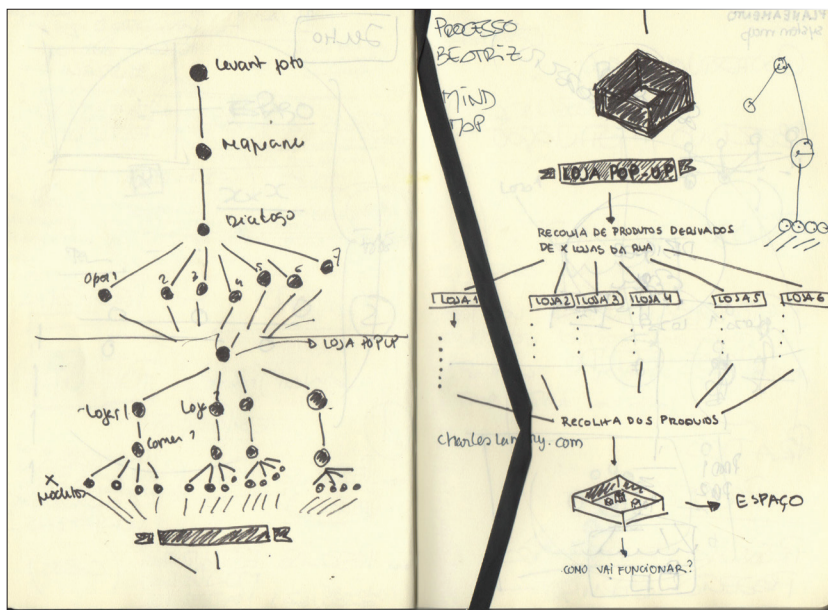 Levant foto
Mapeame
Dialogo
Opor 1
2
3
4
5
6
7
LOJA POPUP
Loja 1
Loja 2
Comer 1
X
produtos
PROCESSO
BEATRIZ
MIND
MAP
LOJA POP-UP
RECOLHA DE PRODUTOS DERIVADOS
DE X LOJAS DA RUA
LOJA 1
LOJA 2
LOJA 3
LOJA 4
LOJA 5
LOJA 6
RECOLHA DOS PRODUTOS
charleslandry.com
ESPAÇO
COMO VAI FUNCIONAR?